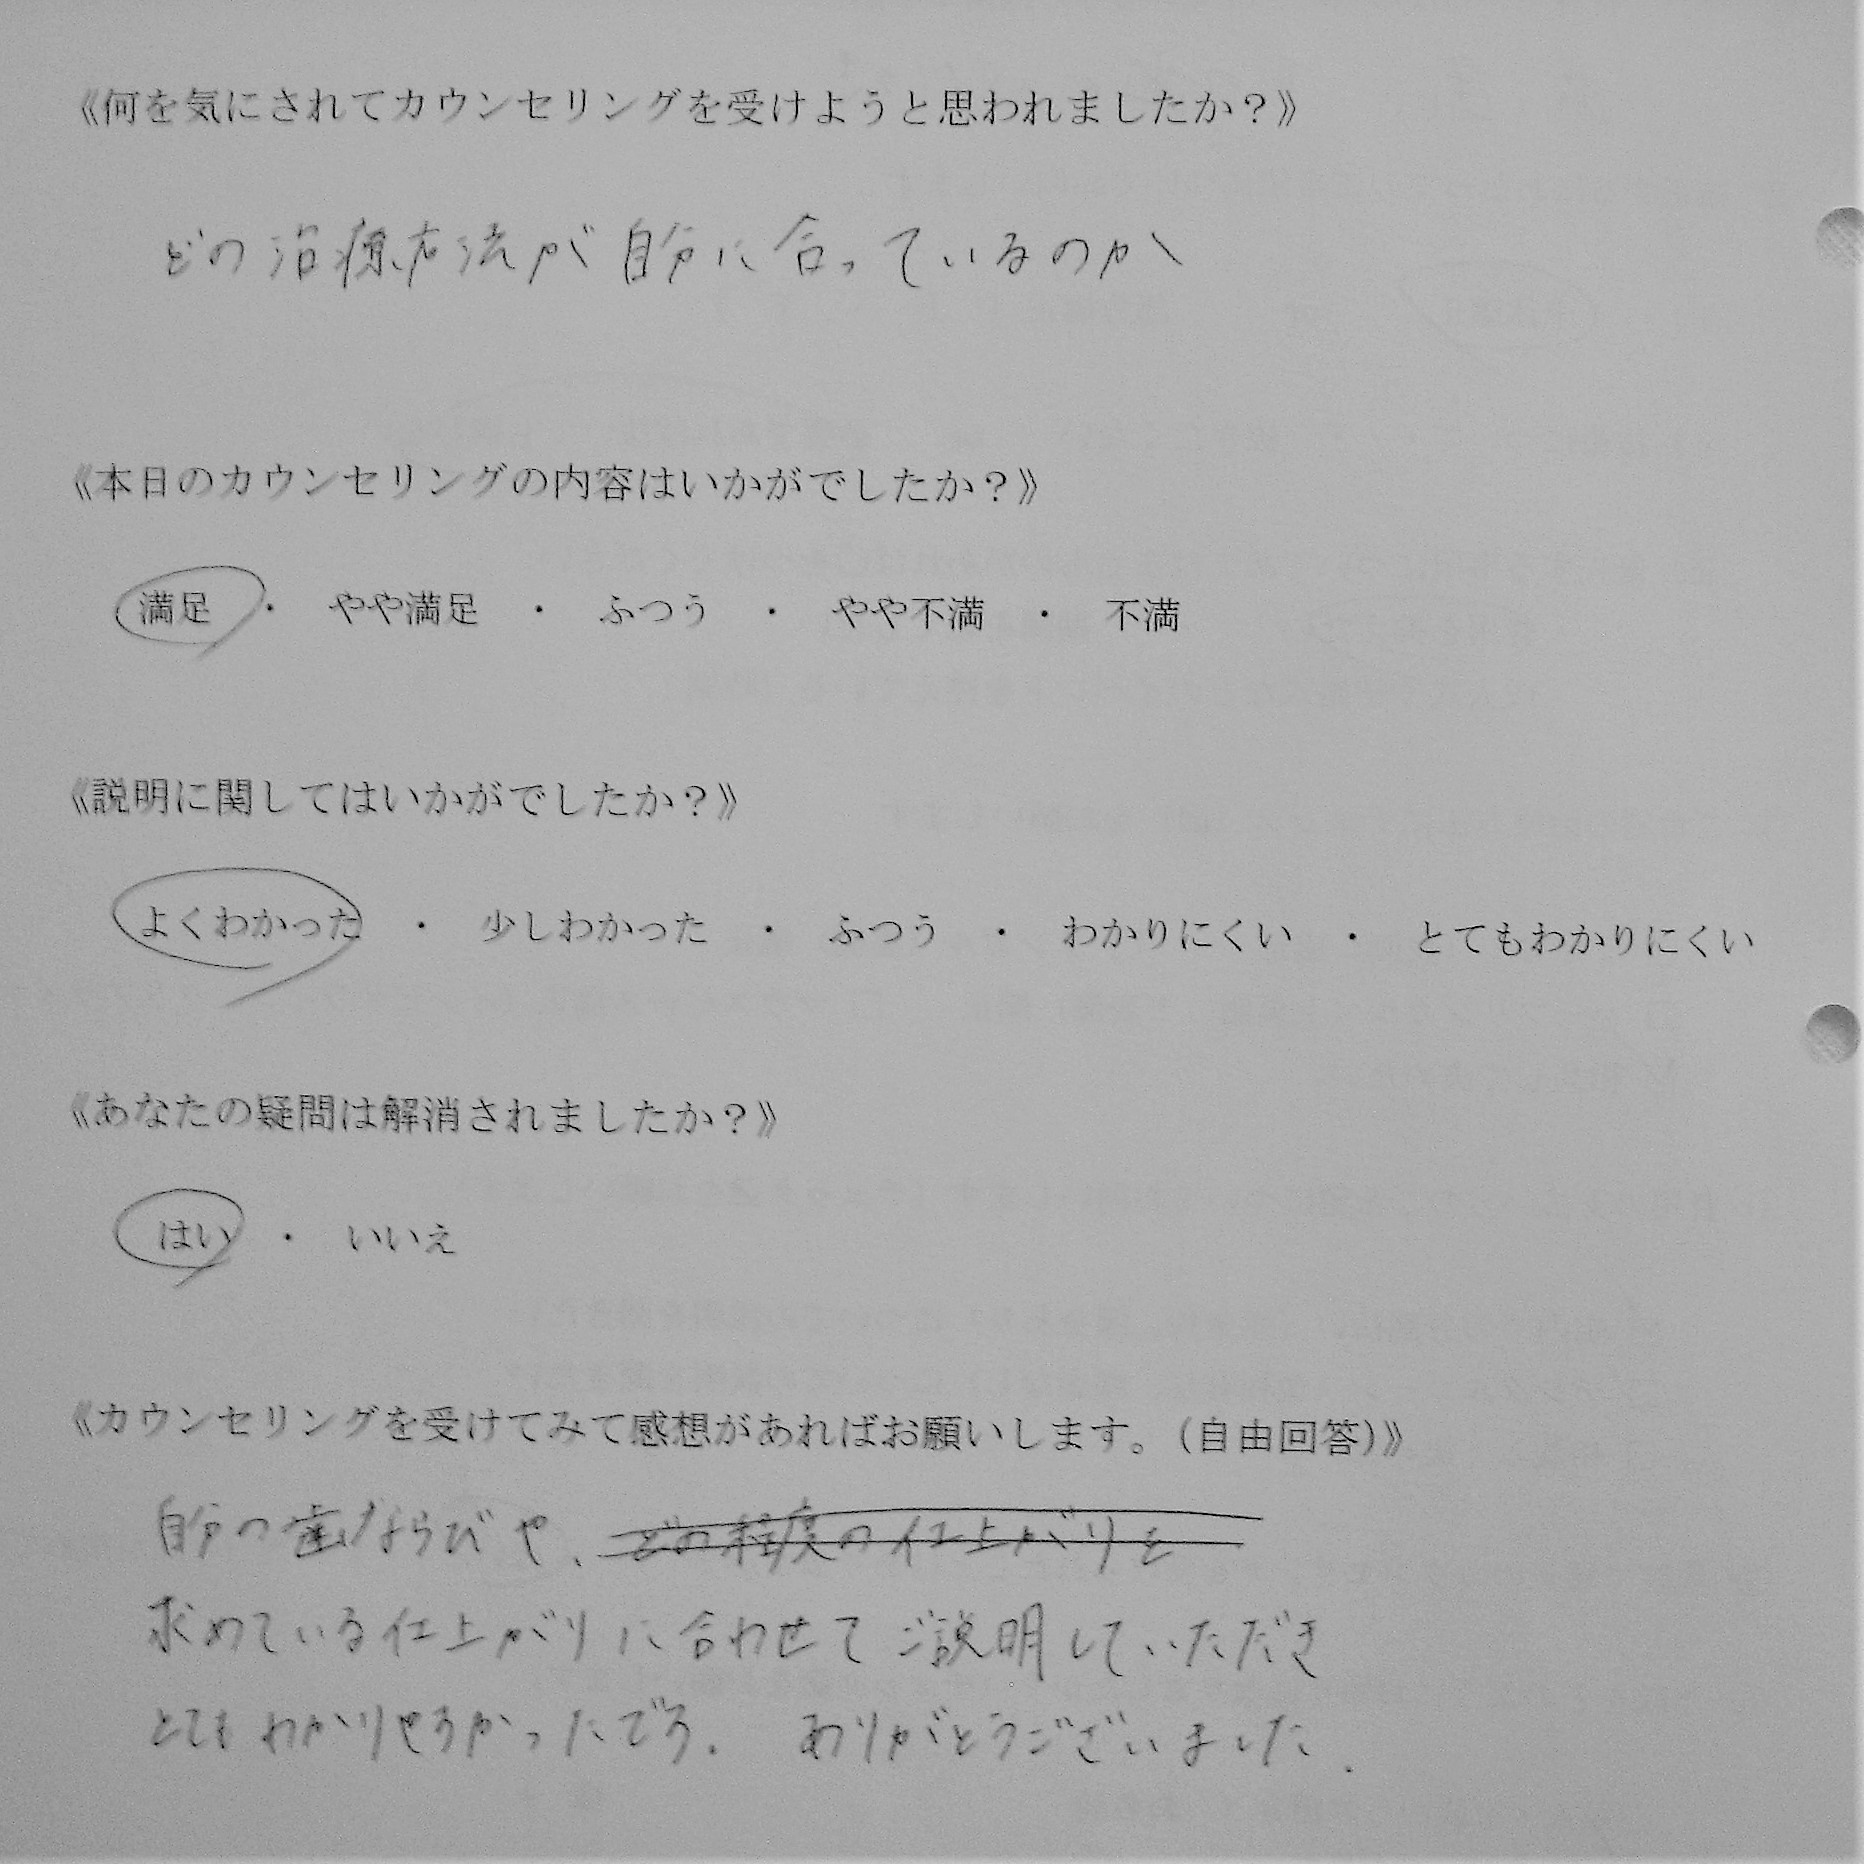 《何を気にされてカウンセリングを受けようと思われましたか？》
どの治療方法が自分に合っているのか
《本日のカウンセリングの内容はいかがでしたか？》
満足 ・ やや満足 ・ ふつう ・ やや不満 ・ 不満
《説明に関してはいかがでしたか？》
よくわかった ・ 少しわかった ・ ふつう ・ わかりにくい ・ とてもわかりにくい
《あなたの疑問は解消されましたか？》
はい ・ いいえ
《カウンセリングを受けてみて感想があればお願いします。（自由回答）》
自分の歯ならびや、どの程度の仕上がりを
求めている仕上がりに合わせてご説明していただき
とてもわかりやすかったです。 ありがとうございました。